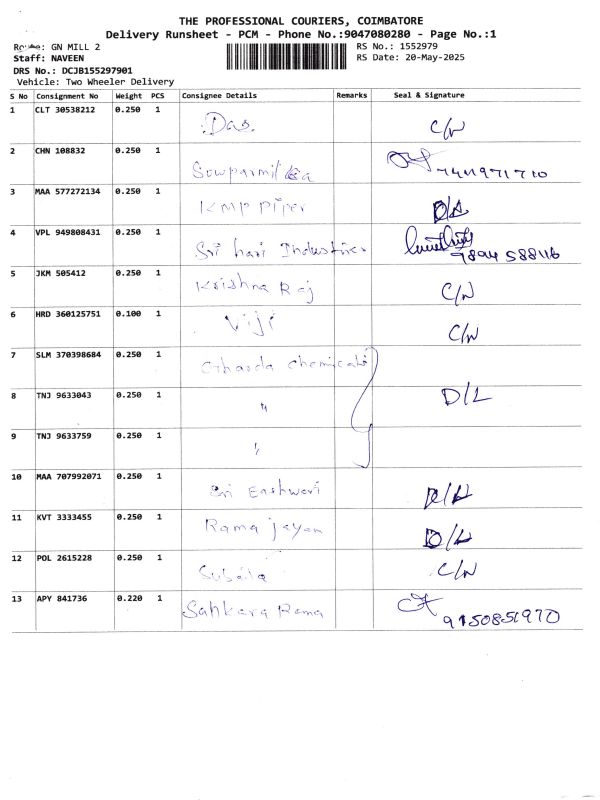 THE PROFESSIONAL COURIERS, COIMBATORE
Delivery Runsheet - PCM - Phone No.:9047080280 - Page No.:1
Route: GN MILL 2 RS No.: 1552979
Staff: NAVEEN RS Date: 20-May-2025
DRS No.: DCJB155297901
Vehicle: Two Wheeler Delivery
S No Consignment No Weight PCS Consignee Details Remarks Seal & Signature
1 CLT 30538212 0.250 1 Das C/N
2 CHN 108832 0.250 1
3 MAA 577272134 0.250 1 KMP Piper D/L
4 VPL 949808431 0.250 1 Sri hari Industries
5 JKM 505412 0.250 1 Krishna Raj C/N
6 HRD 360125751 0.100 1 Viji C/N
7 SLM 370398684 0.250 1 Gharda chemicals
8 TNJ 9633043 0.250 1 " D/L
9 TNJ 9633759 0.250 1 "
10 MAA 707992071 0.250 1 Sri Eashwari D/L
11 KVT 3333455 0.250 1 Rama jayam D/L
12 POL 2615228 0.250 1 C/N
13 APY 841736 0.220 1 Sankara Rama 9150851970